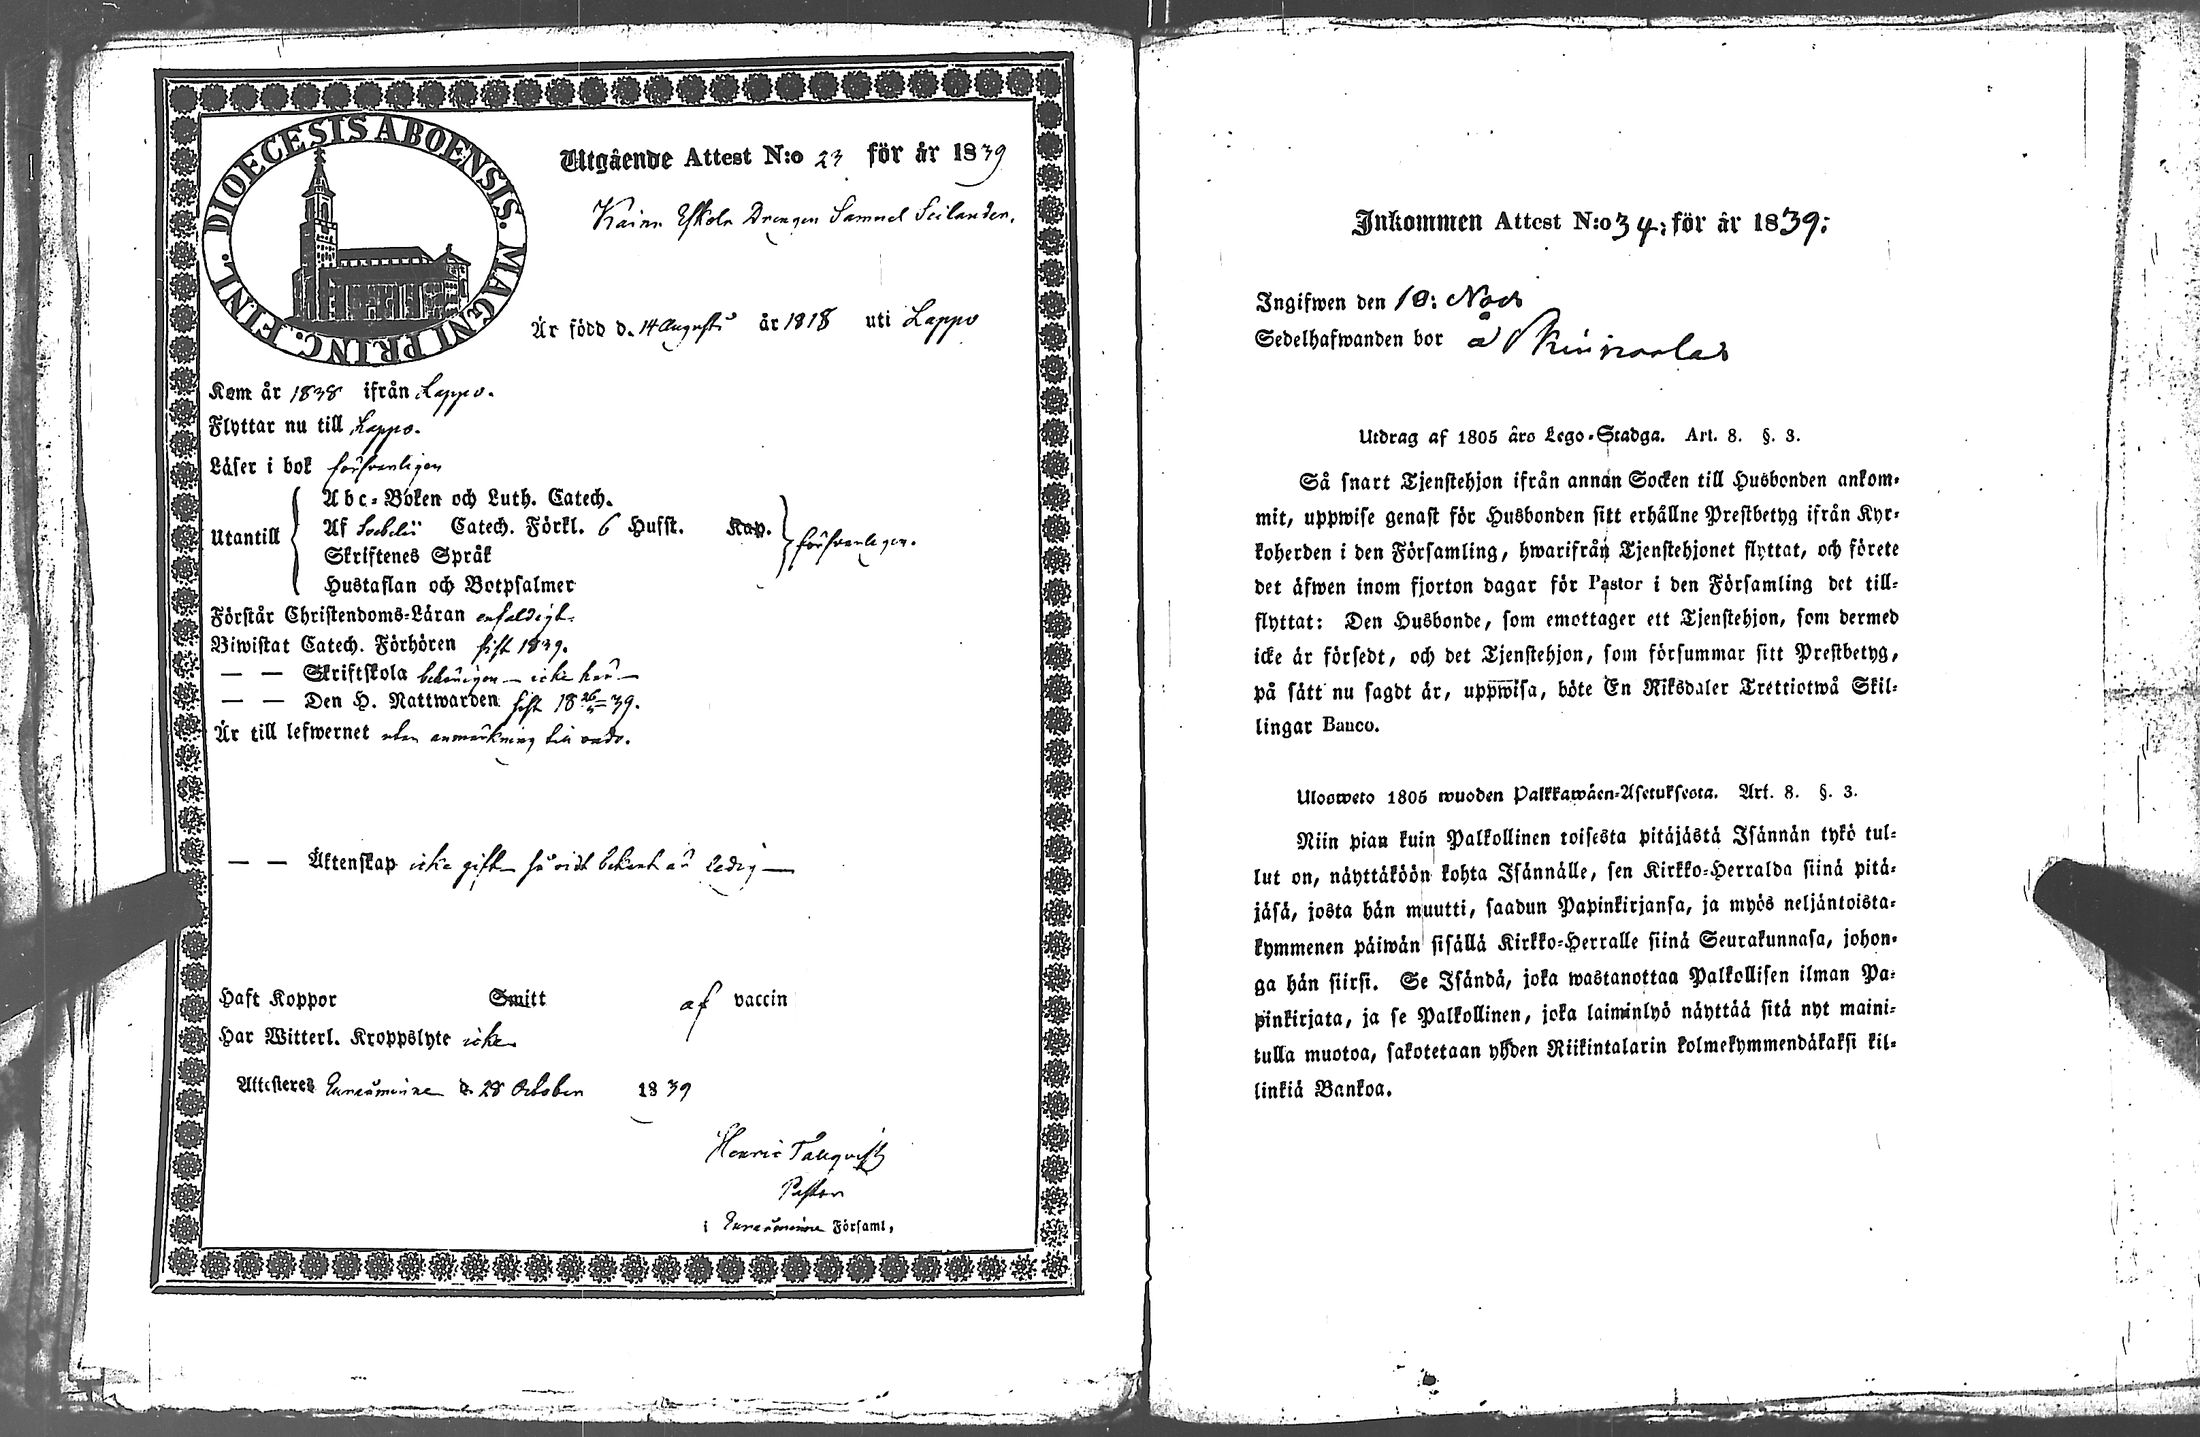 DIOECESIS ABOENSIS. MAGNI PRINC. FINL.
Utgående Attest N:o 23 för år 1839
Kainu Eskola Drengen Samuel Seilander,
Är född d. 14 Augusti år 1818 uti Lappo
Kom år 1838 ifrån Lappo.
Flyttar nu till Lappo.
Läser i bok försvarligen
Abc-Boken och Luth. Catech.
Utantill Af Svebelii Catech. Förkl. 6 Husst. Kap. försvarligen.
Skriftenes Språk
Hustaflan och Botpsalmer
Förstår Christendoms-Läran enfaldigt.
Biwistat Catech. Förhören sist 1839.
— — Skriftskola behörigen — icke här —
— — Den H. Nattwarden sist 18 26/5 39.
Är till lefwernet utan anmärkning
— — Äktenskap icke gift så vidt bekant är ledig —
Haft Koppor Smitt af vaccin
Har Witterl. Kroppslyte icke
Attesteres d. 28 October 1839
Henric Tallqvist
Pastor
i Församl,
Inkommen Attest N:o 34: för år 1839:
Ingifwen den 10: Nov
Sedelhafwanden bor å
Utdrag af 1805 års Lego-Stadga. Art. 8. §. 3.
Så snart Tjenstehjon ifrån annan Socken till Husbonden ankom-
mit, uppwise genast för Husbonden sitt erhållne Prestbetyg ifrån Kyr-
koherden i den Församling, hwarifrån Tjenstehjonet flyttat, och förete
det äfwen inom fjorton dagar för Pastor i den Församling det till-
flyttat: Den Husbonde, som emottager ett Tjenstehjon, som dermed
icke är försedt, och det Tjenstehjon, som försummar sitt Prestbetyg,
på sätt nu sagdt är, uppwisa, böte En Riksdaler Trettiotwå Skil-
lingar Banco.
Ulosweto 1805 wuoden Palkkawäen-Asetuksesta. Art. 8. §. 3.
Niin pian kuin Palkollinen toisesta pitäjästä Isännän tykö tul-
lut on, näyttäköön kohta Isännälle, sen Kirkko-Herralda siinä pitä-
jäsä, josta hän muutti, saadun Papinkirjansa, ja myös neljäntoista-
kymmenen päiwän sisällä Kirkko-Herralle siinä Seurakunnasa, johon-
ga hän siirsi. Se Isändä, joka wastanottaa Palkollisen ilman Pa-
pinkirjata, ja se Palkollinen, joka laiminlyö näyttää sitä nyt maini-
tulla muotoa, sakotetaan yhden Riikintalarin kolmekymmendäkaksi kil-
linkiä Bankoa.